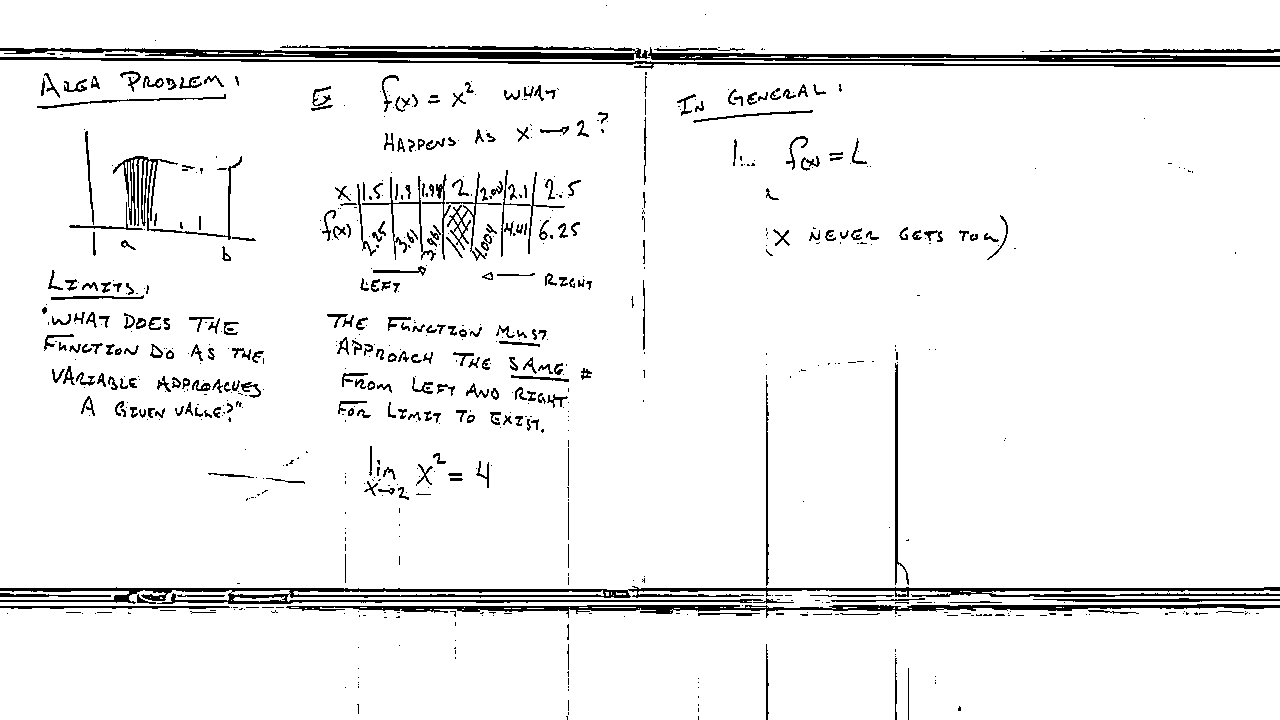 AREA PROBLEM:
a b
LIMITS:
"WHAT DOES THE
FUNCTION DO AS THE
VARIABLE APPROACHES
A GIVEN VALUE?"
EX f(x) = x² WHAT
HAPPENS AS X → 2?
X 1.5 1.9 1.99 2 2.001 2.1 2.5
f(x) 2.25 3.61 3.961 4.004 4.41 6.25
LEFT → ← RIGHT
THE FUNCTION MUST
APPROACH THE SAME #
FROM LEFT AND RIGHT
FOR LIMIT TO EXIST.
lim x² = 4
x→2
IN GENERAL:
f(x) = L
(X NEVER GETS TO a)